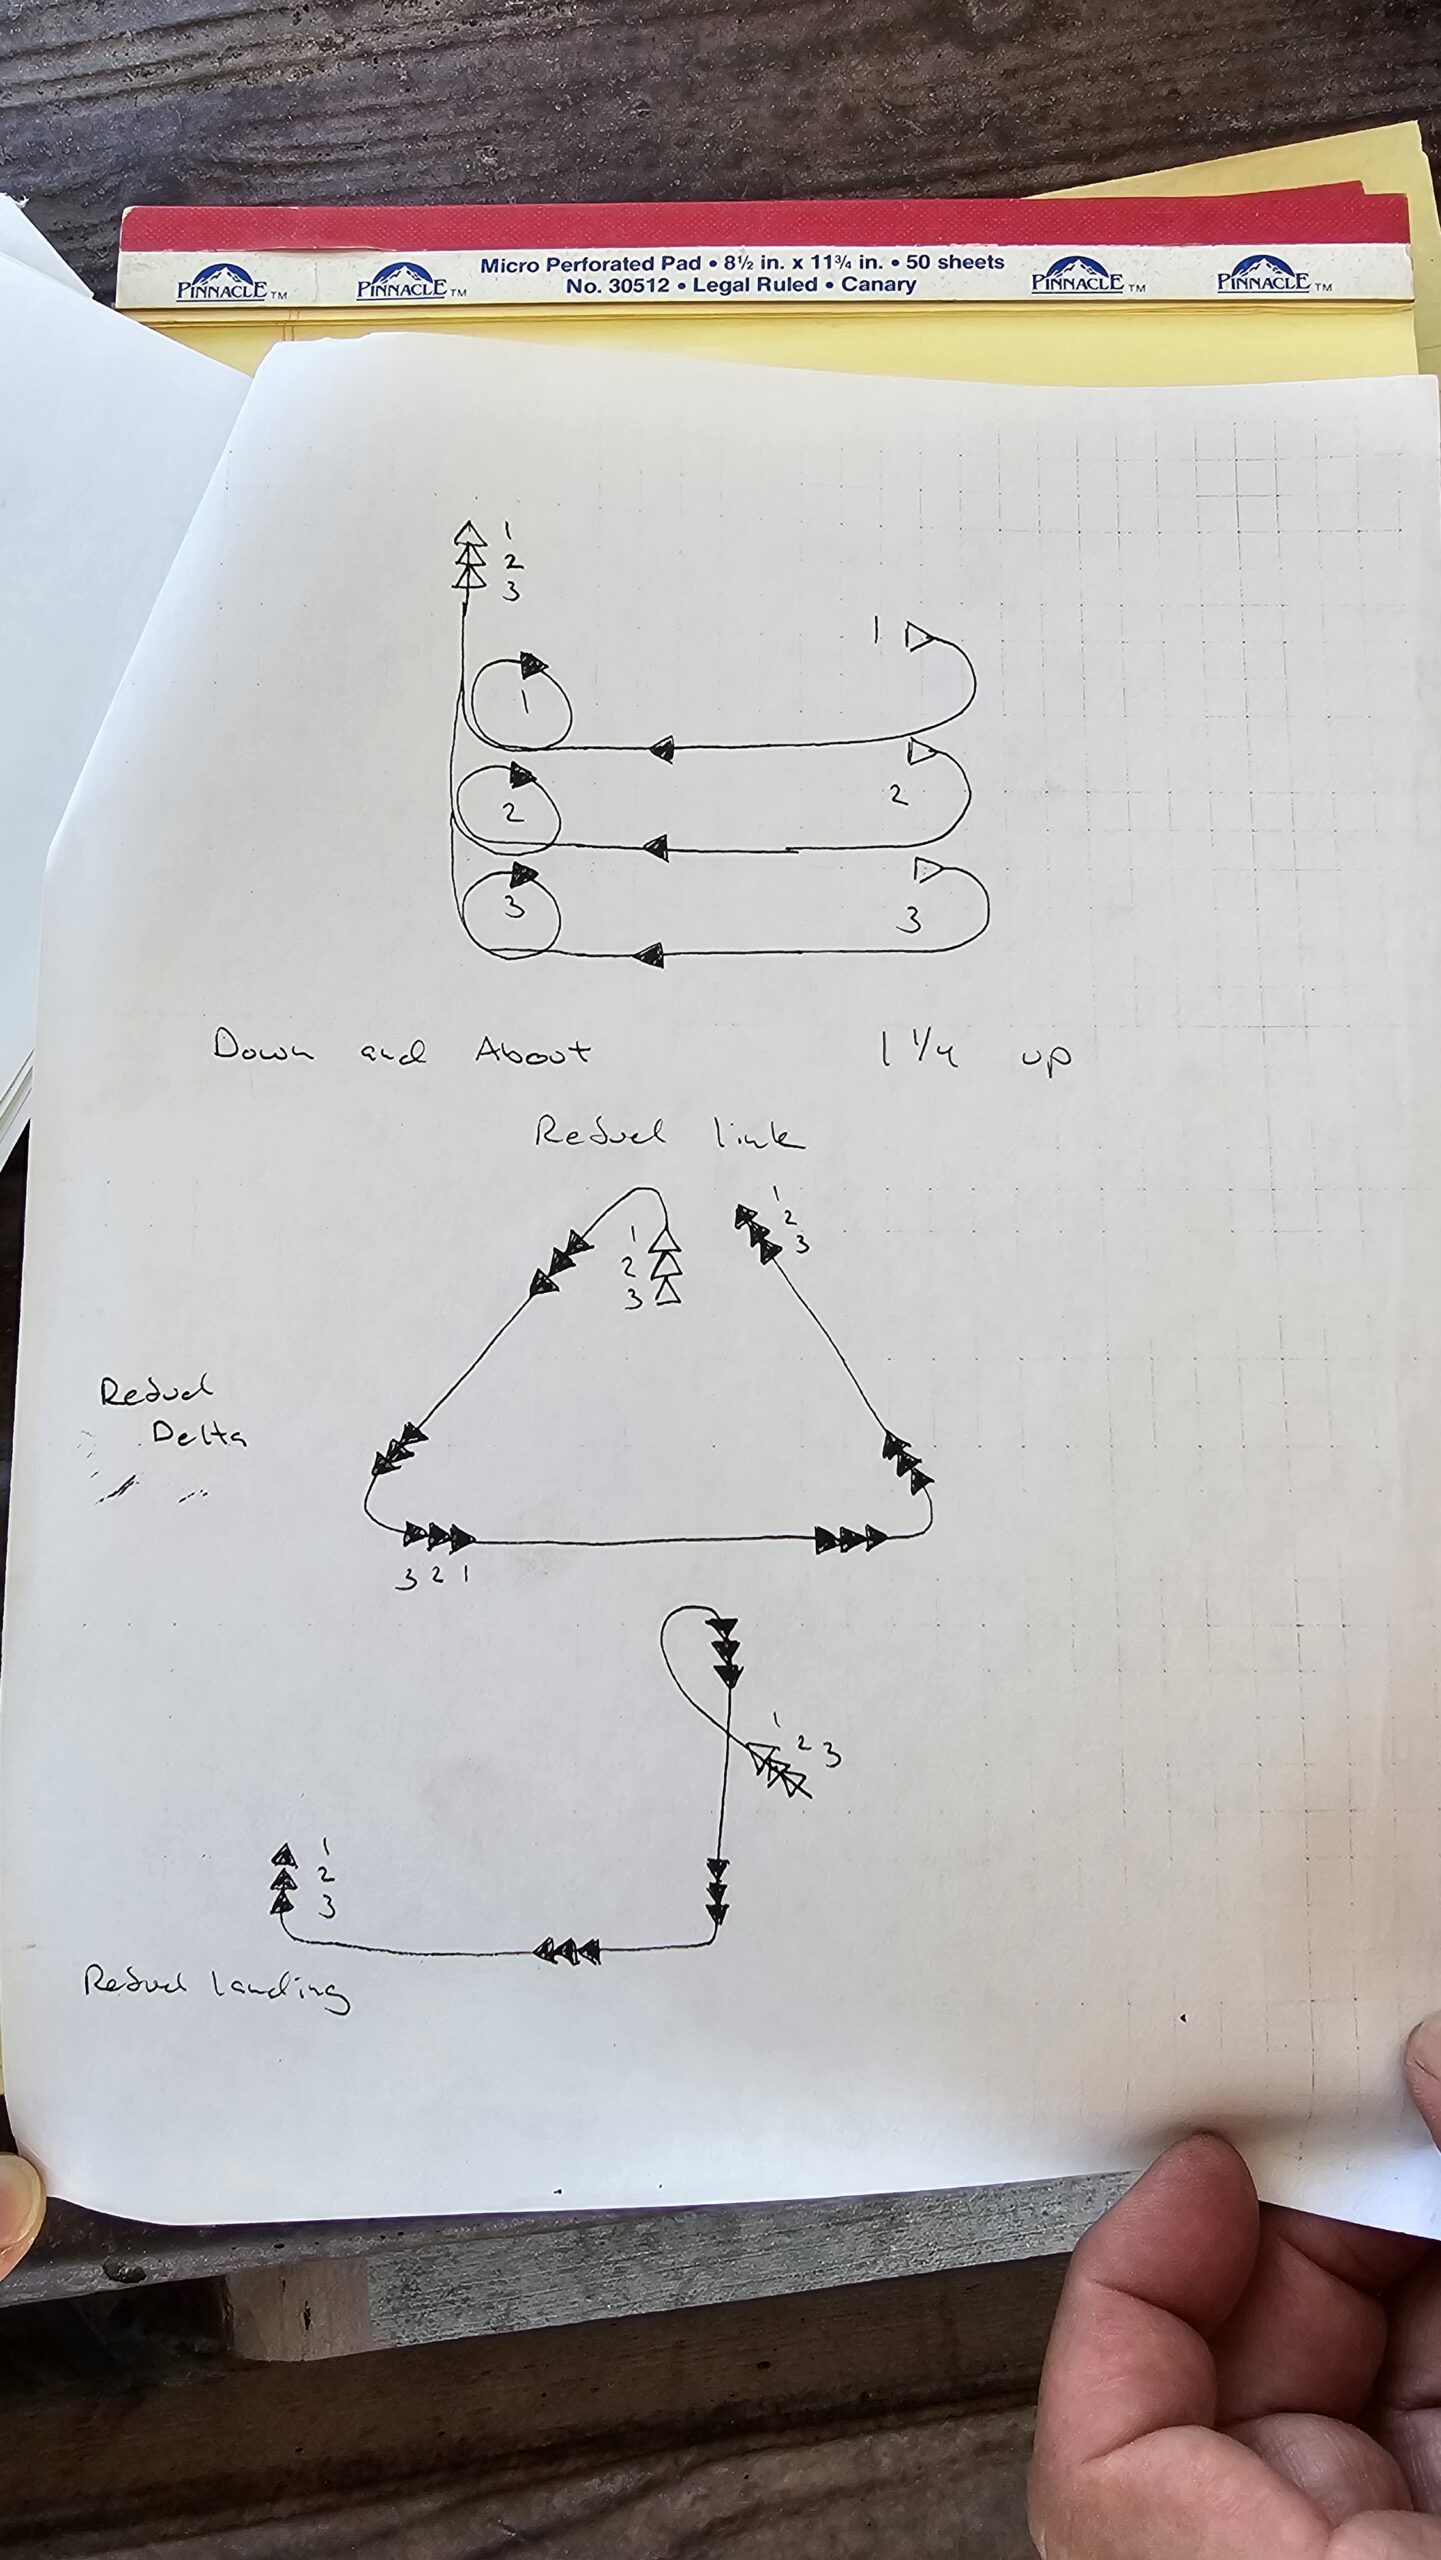 PINNACLE™ PINNACLE™ Micro Perforated Pad • 8½ in. x 11¾ in. • 50 sheets PINNACLE™ PINNACLE™
No. 30512 • Legal Ruled • Canary
1
2
3
1
1
2
2
3
3
Down and About 1 1/4 up
Refuel link
1
2
3
1
2
3
Refuel
Delta
3 2 1
1
2 3
1
2
3
Refuel landing